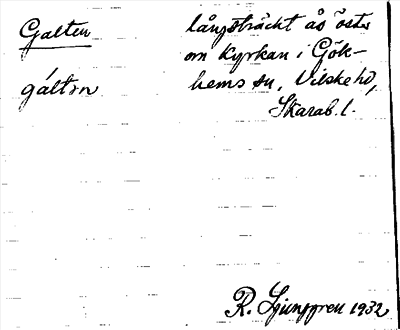 Galten
gáltn
långsträckt ås öster
om kyrkan i Gök-
hems sn, Vilske hd,
Skarab. l.
R. Ljunggren 1932